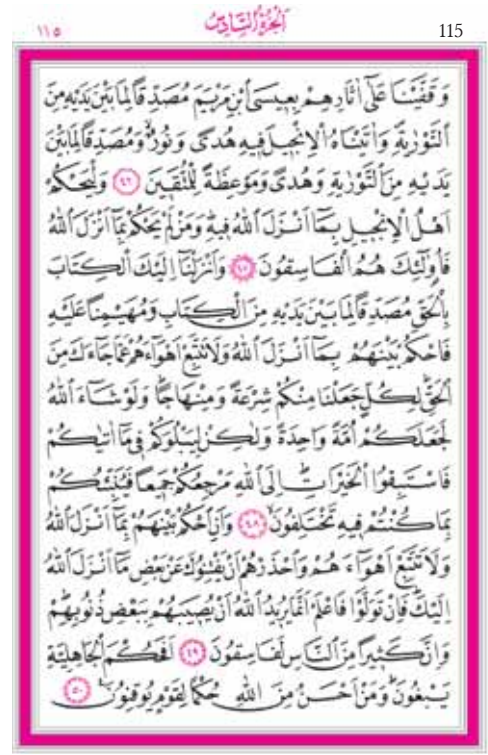 ١١٥ اَلْجُزْءُ السَّادِسُ 115
وَقَفَّيْنَا عَلٰٓى اٰثَارِهِمْ بِعِيسَى ابْنِ مَرْيَمَ مُصَدِّقًا لِمَا بَيْنَ يَدَيْهِ مِنَ
التَّوْرٰيةِۖ وَاٰتَيْنَاهُ الْاِنْجِيلَ فِيهِ هُدًى وَنُورٌۙ وَمُصَدِّقًا لِمَا بَيْنَ
يَدَيْهِ مِنَ التَّوْرٰيةِ وَهُدًى وَمَوْعِظَةً لِلْمُتَّقِينَ ﴿٤٦﴾ وَلْيَحْكُمْ
اَهْلُ الْاِنْجِيلِ بِمَٓا اَنْزَلَ اللّٰهُ فِيهِۜ وَمَنْ لَمْ يَحْكُمْ بِمَٓا اَنْزَلَ اللّٰهُ
فَاُو۬لٰٓئِكَ هُمُ الْفَاسِقُونَ ﴿٤٧﴾ وَاَنْزَلْنَٓا اِلَيْكَ الْكِتَابَ
بِالْحَقِّ مُصَدِّقًا لِمَا بَيْنَ يَدَيْهِ مِنَ الْكِتَابِ وَمُهَيْمِنًا عَلَيْهِ
فَاحْكُمْ بَيْنَهُمْ بِمَٓا اَنْزَلَ اللّٰهُ وَلَا تَتَّبِعْ اَهْوَٓاءَهُمْ عَمَّا جَٓاءَكَ مِنَ
الْحَقِّۜ لِكُلٍّ جَعَلْنَا مِنْكُمْ شِرْعَةً وَمِنْهَاجًاۜ وَلَوْ شَٓاءَ اللّٰهُ
لَجَعَلَكُمْ اُمَّةً وَاحِدَةً وَلٰكِنْ لِيَبْلُوَكُمْ فِي مَٓا اٰتٰيكُمْ
فَاسْتَبِقُوا الْخَيْرَاتِۜ اِلَى اللّٰهِ مَرْجِعُكُمْ جَمِيعًا فَيُنَبِّئُكُمْ
بِمَا كُنْتُمْ فِيهِ تَخْتَلِفُونَۙ ﴿٤٨﴾ وَاَنِ احْكُمْ بَيْنَهُمْ بِمَٓا اَنْزَلَ اللّٰهُ
وَلَا تَتَّبِعْ اَهْوَٓاءَهُمْ وَاحْذَرْهُمْ اَنْ يَفْتِنُوكَ عَنْ بَعْضِ مَٓا اَنْزَلَ اللّٰهُ
اِلَيْكَۜ فَاِنْ تَوَلَّوْا فَاعْلَمْ اَنَّمَا يُرِيدُ اللّٰهُ اَنْ يُصِيبَهُمْ بِبَعْضِ ذُنُوبِهِمْۜ
وَاِنَّ كَثِيرًا مِنَ النَّاسِ لَفَاسِقُونَ ﴿٤٩﴾ اَفَحُكْمَ الْجَاهِلِيَّةِ
يَبْغُونَۜ وَمَنْ اَحْسَنُ مِنَ اللّٰهِ حُكْمًا لِقَوْمٍ يُوقِنُونَ۟ ﴿٥٠﴾